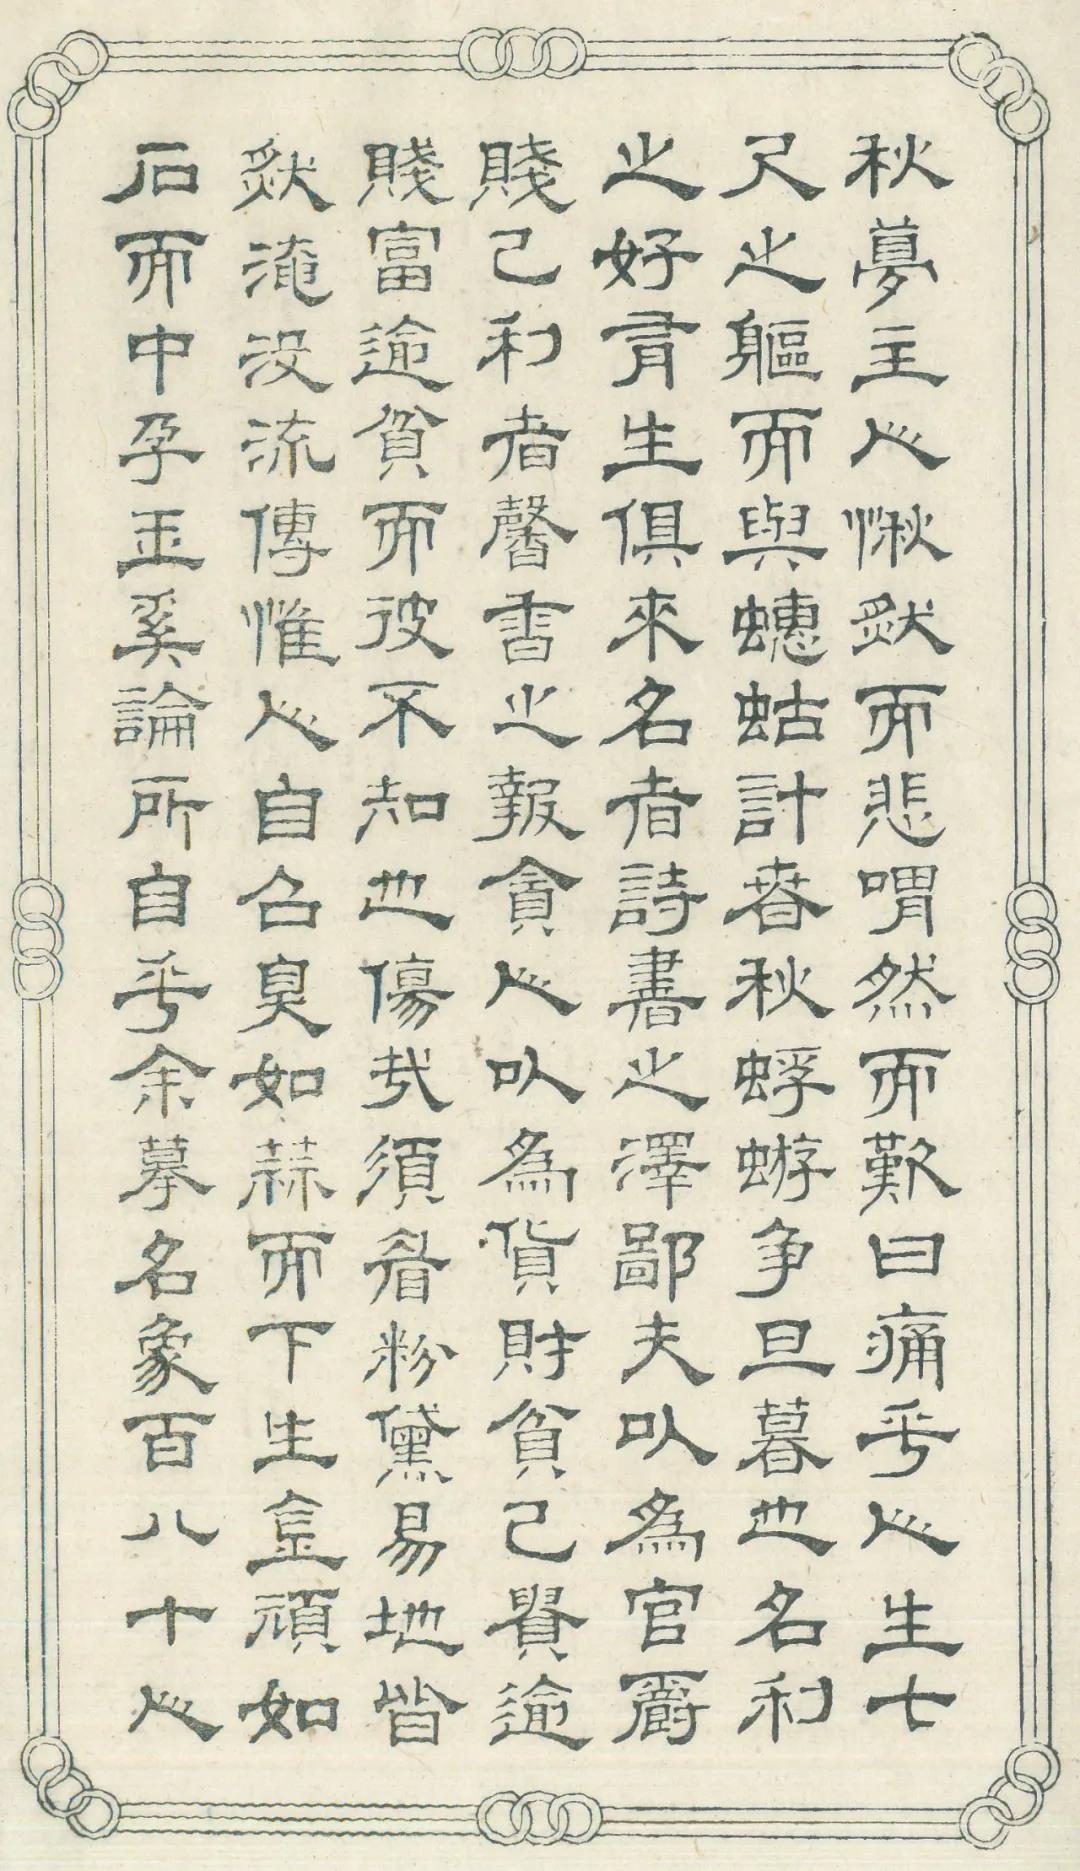 秋夢主人愀然而悲喟然而歎曰痛乎人生七
尺之軀而與蟪蛄計春秋蜉蝣争旦暮也名利
之好有生俱來名者詩書之澤鄙夫以為官爵
賤已利者馨香之報貪人以為貨財貧已貴逾
賤富逾貧而彼不知也傷哉須眉粉黛易地皆
然淹没流傳惟人自召臭如蒜而下生金頑如
石而中孕玉奚論所自乎余摹名象百八十人